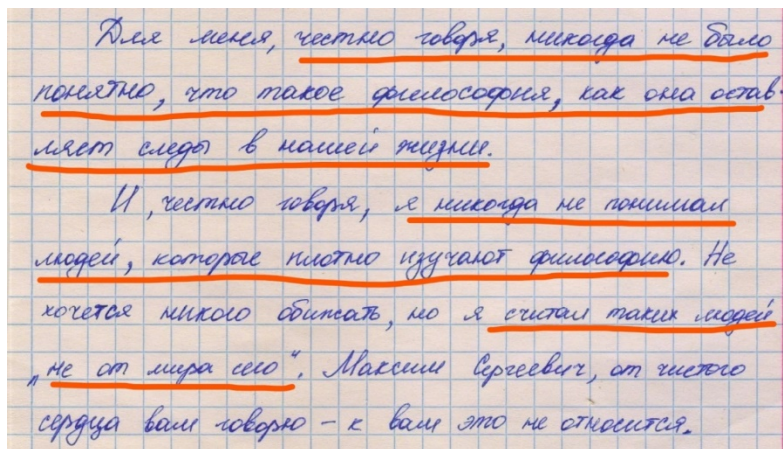 Для меня, честно говоря, никогда не было
понятно, что такое философия, как она остав-
ляет следы в нашей жизни.
И, честно говоря, я никогда не понимал
людей, которые плотно изучают философию. Не
хочется никого обижать, но я считал таких людей
„не от мира сего“. Максим Сергеевич, от чистого
сердца вам говорю – к вам это не относится.